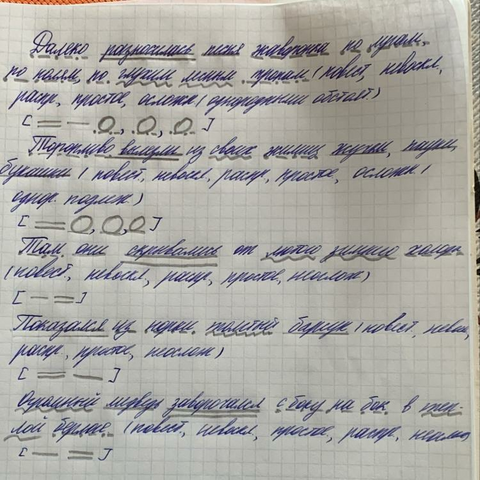 Далеко разносилась песня жаворонка по лугам,
по полям, по глухим лесным тропам (повест, невоскл,
распр, простое, осложн (однородными обстоят)
[ = — О, О, О ]
Торопливо вылезли из своих жилищ жучки, паучки,
букашки (повест, невоскл, распр, простое, осложн (
однор. подлеж)
[ = О, О, О ]
Там они скрывались от лютого зимнего холода
(повест, невоскл, распр, простое, неослож)
[ — = ]
Показался из норы толстый барсук (повест, невоскл,
распр, простое, неослож)
[ = — ]
Огромный медведь заворочался с боку на бок в теп-
лой берлоге (повест, невоскл, простое, распр, неослож
[ — = ]